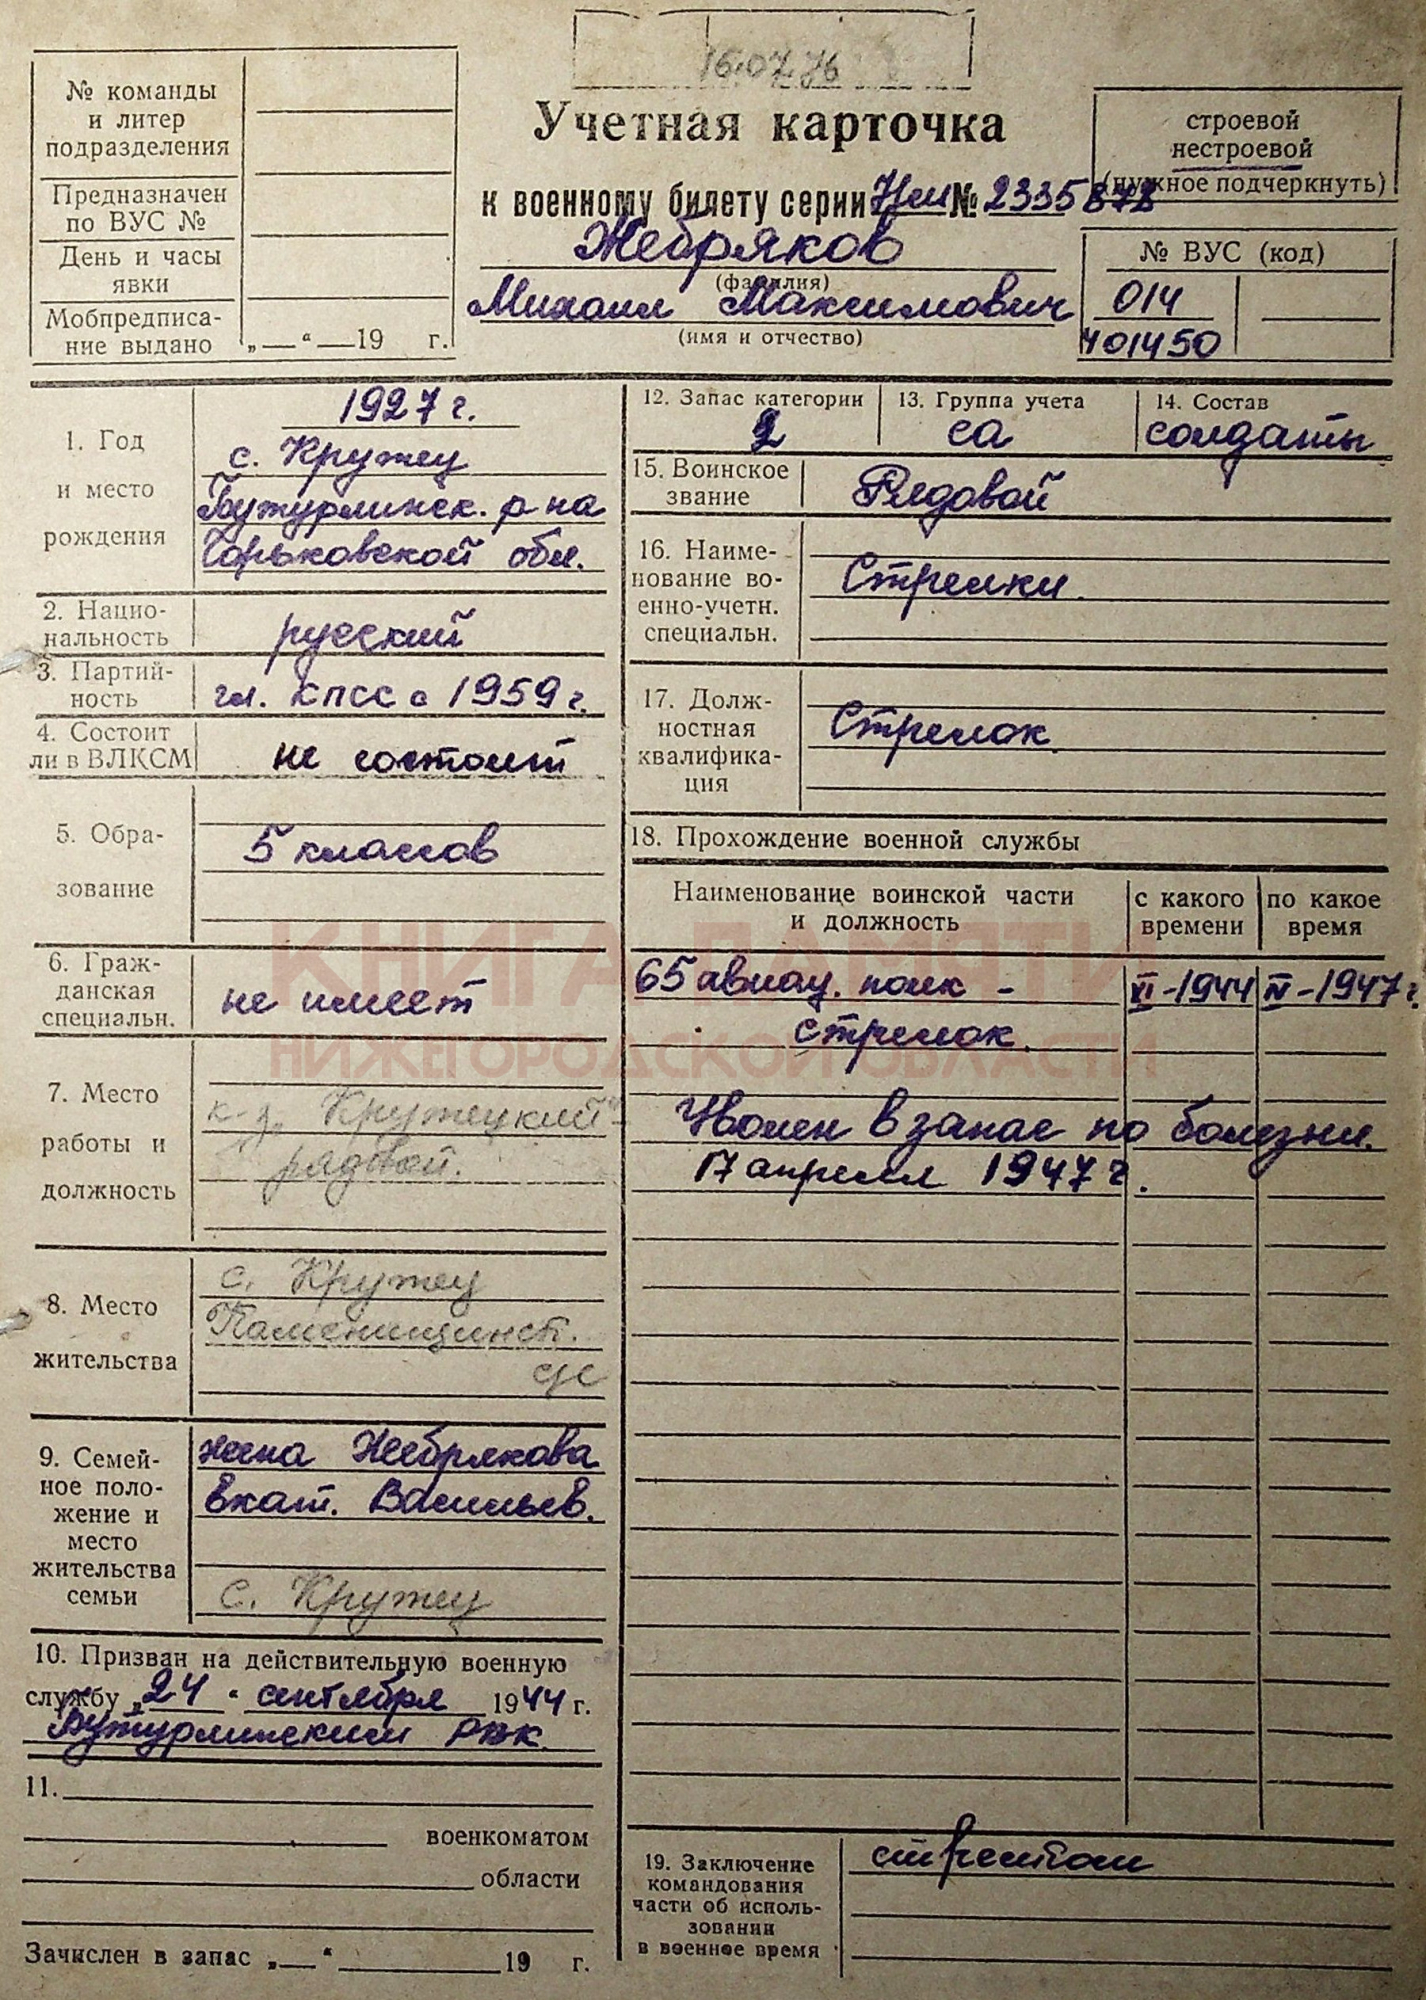 16.07.76
№ команды
и литер
подразделения
Предназначен
по ВУС №
День и часы
явки
Мобпредписа-
ние выдано „—“—19 г.
Учетная карточка
к военному билету серии № 2335872
Жебряков
(фамилия)
Михаил Максимович
(имя и отчество)
строевой
нестроевой
(нужное подчеркнуть)
№ ВУС (код)
014
401450
1. Год
и место
рождения
1927 г.
с. Кружец
Бутурлинск. р-на
Горьковской обл.
2. Нацио-
нальность
русский
3. Партий-
ность
чл. КПСС с 1959 г.
4. Состоит
ли в ВЛКСМ
не состоит
5. Обра-
зование
5 классов
6. Граж-
данская
специальн.
не имеет
7. Место
работы и
должность
к-з „Кружецкий“-
рядовой.
8. Место
жительства
с. Кружец
Каменищинск.
с/с
9. Семей-
ное поло-
жение и
место
жительства
семьи
жена Жебрякова
Екат. Васильев.
с. Кружец
10. Призван на действительную военную
службу „24“ сентября 1944 г.
Бутурлинским РВК.
11.
военкоматом
области
Зачислен в запас „—“ 19 г.
12. Запас категории
2
13. Группа учета
СА
14. Состав
солдаты
15. Воинское
звание
Рядовой
16. Наиме-
нование во-
енно-учетн.
специальн.
Стрелки.
17. Долж-
ностная
квалифика-
ция
Стрелок.
18. Прохождение военной службы
Наименование воинской части
и должность
с какого
времени
по какое
время
65 авиац. полк - XI-1944 IV-1947 г.
стрелок.
Уволен в запас по болезни.
17 апреля 1947 г.
19. Заключение
командования
части об исполь-
зовании
в военное время
стрелком
КНИГА ПАМЯТИ
НИЖЕГОРОДСКОЙ ОБЛАСТИ